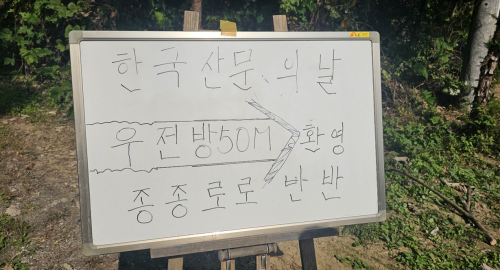 한국산문、의날
우전방50M 환영
종종로로 반반